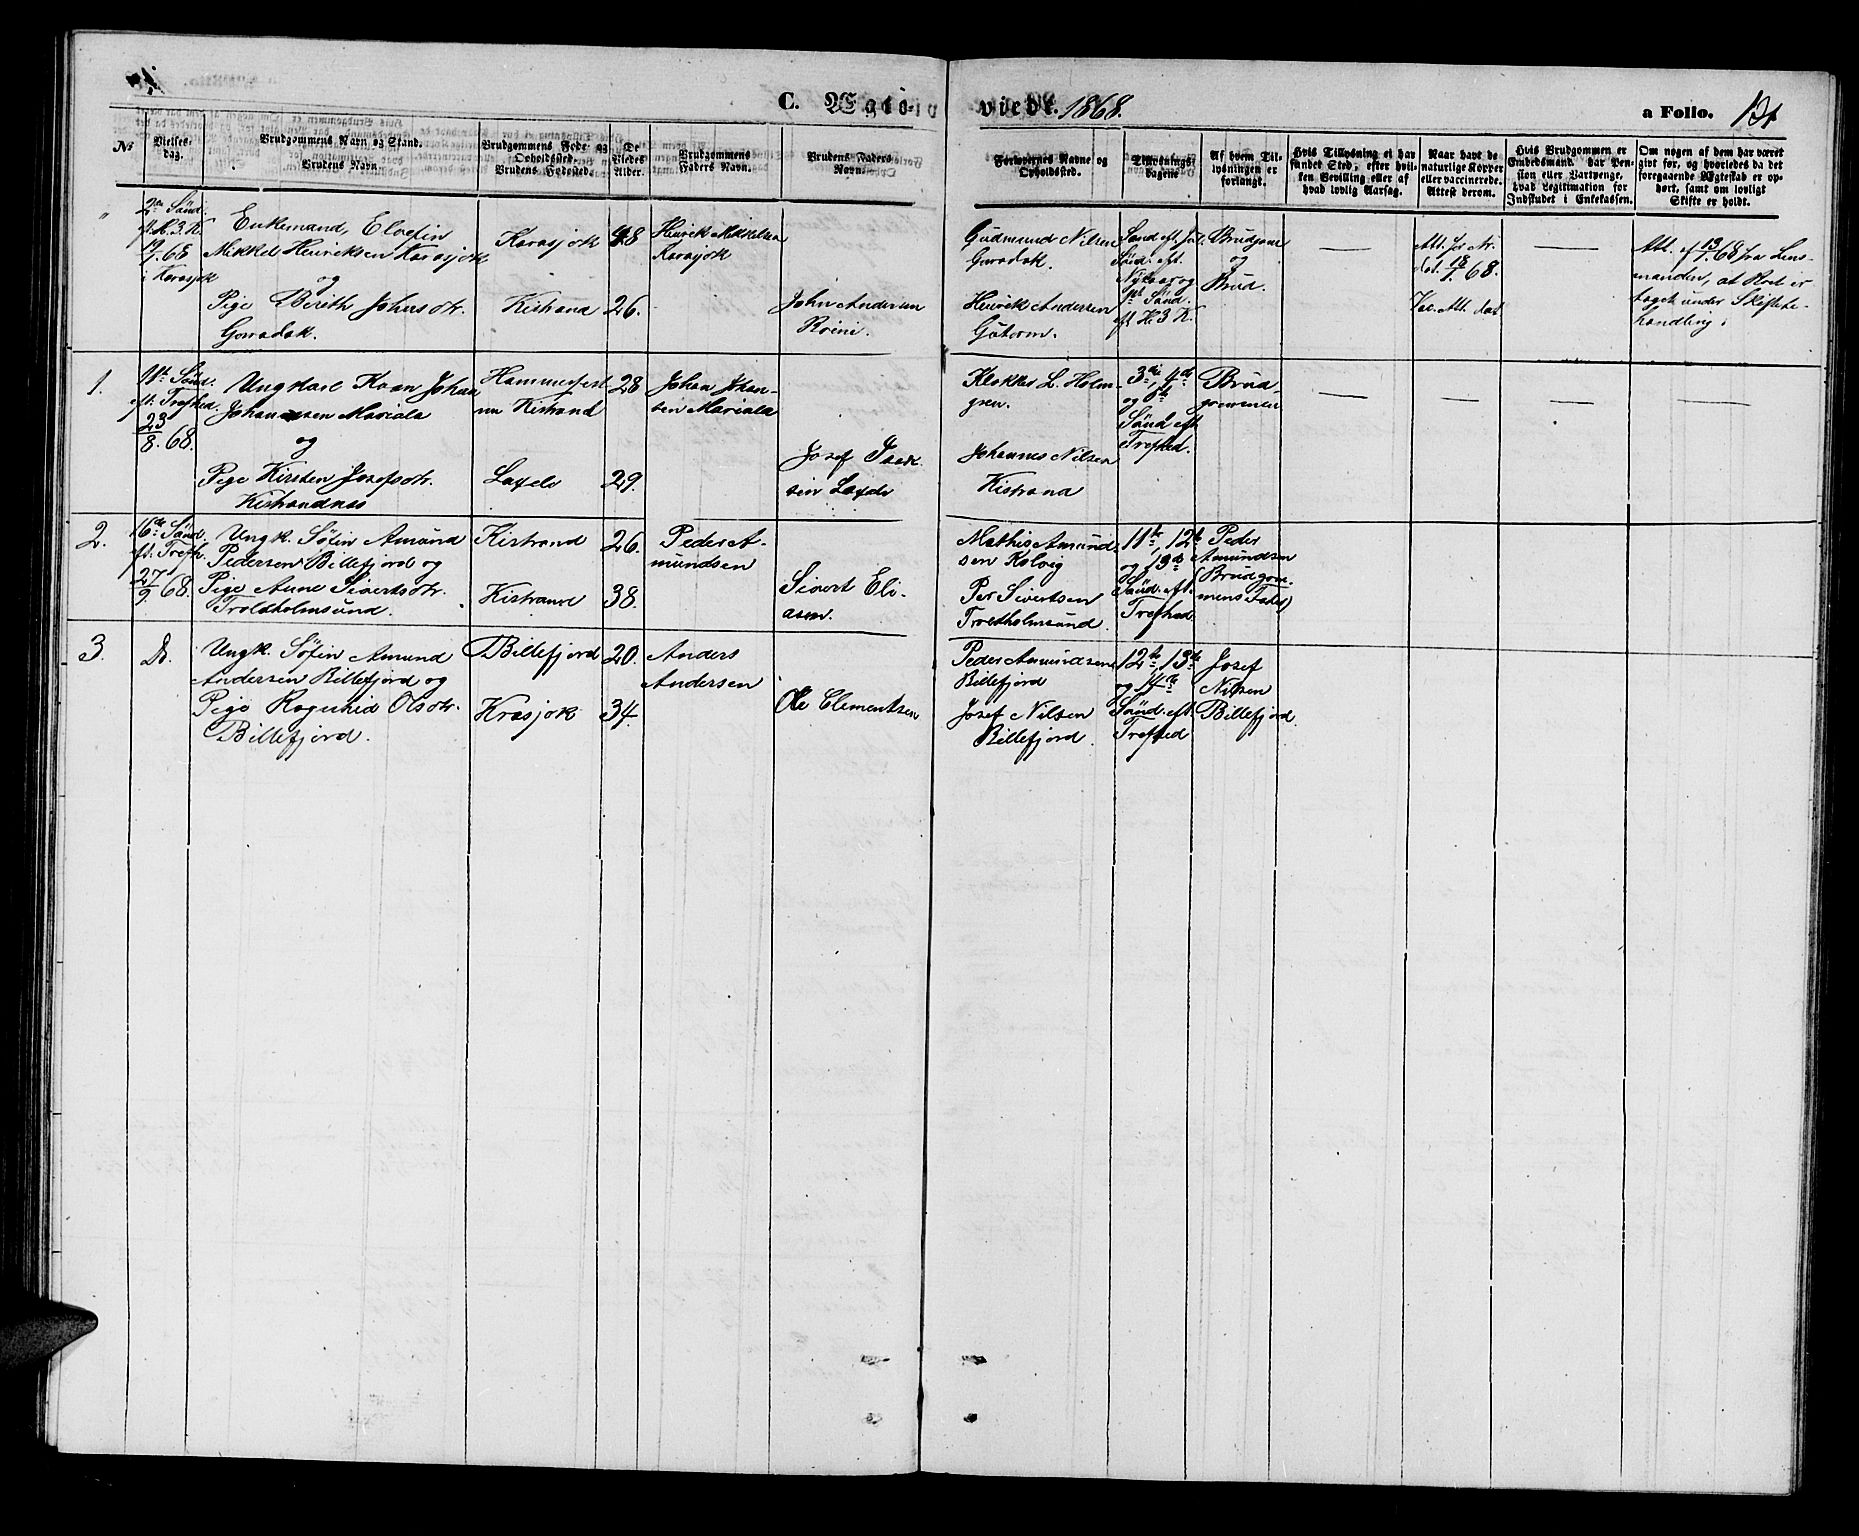 C. Ægte-
viede. 1868.
a Folio. 131
№
Vielses-
dag.
Brudgommens Navn og Stand.
Brudens Navn.
Brudgommens Føde- og
Opholdssted.
Brudens Fødested.
De
Viedes
Alder.
Brudgommens
Faders Navn.
Brudens Faders
Navn.
Forlovernes Navne og
Opholdssted.
Tillysnings-
dagene.
Af hvem Til-
lysningen er
forlangt.
Hvis Tillysning ei har
fundet Sted, efter hvil-
ken Bevilling eller af
hvad lovlig Aarsag.
Naar havt de
naturlige Kopper
eller vaccinerede.
Attest derom.
Hvis Brudgommen er
Embedsmand, har Pen-
sion eller Vartpenge,
hvad Legitimation for
Indskudet i Enkekassen.
Om nogen af dem har været
gift før, og hvorledes da det
foregaaende Ægteskab er op-
hørt, samt om lovligt
Skifte er holdt.
"
2den Sønd.
ft. H. 3 K.
19/1 68
i Karasjok
Enkemand, Elvefin
Mikkel Henriksen Karasjok
og
Pige Berith Johnsdtr.
Goradak.
Karasjok
Kistrand
48
26.
Henrik Mikkelsen
Karasjok
John Andersen
Roini.
Gudmund Nilsen
Goradak.
Henrik Andersen
Gutorm.
Sønd eft. Jul.
Sønd. eft.
Nytaar og
1st Sønd.
ft. H. 3 K.
Brudgom
og
Brud.
Att. fr Nr.
dat. 18/1 68.
Vac. Att. dat
Att. af 13/1 68 fra Lens-
manden, at Boet er
taget under Skiftebe-
handling.
1.
11te Sønd.
eft. Trefhed.
23/8 68.
Ungkarl Kaan Johan
Johannesen Mariala
og
Pige Kirsten Josefsdtr.
Kistrandnæs
Hammerfest
nu Kistrand
Laxelv
28
29.
Johan Johan-
sen Mariala
Josef Isak-
sen Laxelv
Klokker L. Holm-
gren.
Johannes Nilsen
Kistrand
3die, 4de
og 6te
Sønd eft.
Trefhed.
Brud
gommen
2.
16de Sønd.
ft. Trefh.
27/9 68.
Ungk. Søfin Amund
Pedersen Billefjord og
Pige Anne Sivertsdtr.
Troldholmsund.
Kistrand
Kistrand
26.
38.
Peder A-
mundsen
Sivert Eli-
asen.
Mathis Amund-
sen Kolvig
Per Sivertsen
Troldholmsund
11te, 12te
og 13de
Sønd. eft.
Trefhed
Peder
Amundsen
(Brudgom-
mens Fader)
3.
Do.
Ungk. Søfin Amund
Andersen Billefjord og
Pige Ragnhild Olsdtr.
Billefjord.
Billefjord
Krasjok
20.
34.
Anders
Andersen
Ole Clementsen
Peder Amundsen
Billefjord
Josef Nilsen
Billefjord.
12te, 13de
og 14de
Sønd. eft.
Trefhed
Josef
Nilsen
Billefjord.